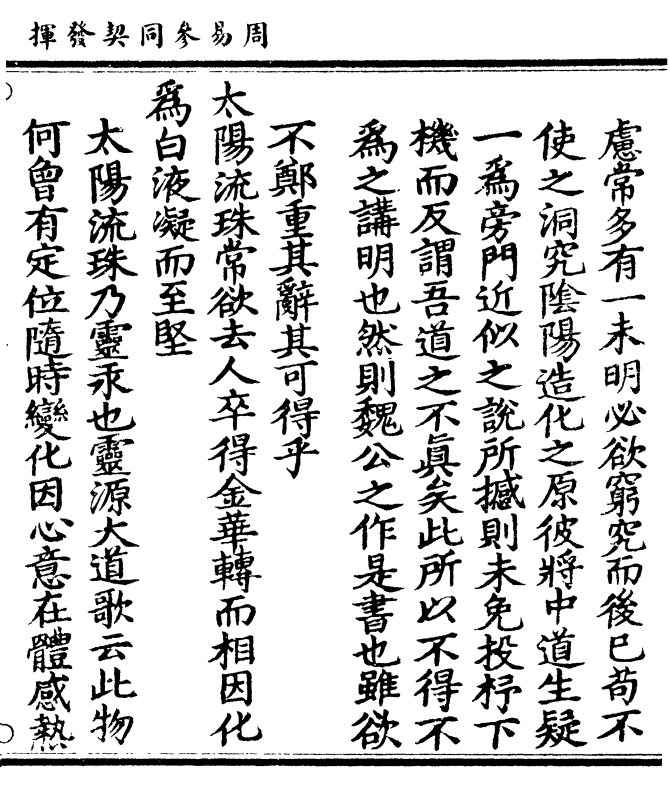 周易參同契發揮
慮常多有一未明必欲窮究而後已苟不
使之洞究陰陽造化之原彼將中道生疑
一為旁門近似之說所撼則未免投杼下
機而反謂吾道之不真矣此所以不得不
為之講明也然則魏公之作是書也雖欲
不鄭重其辭其可得乎
太陽流珠常欲去人卒得金華轉而相因化
為白液凝而至堅
太陽流珠乃靈汞也靈源大道歌云此物
何曾有定位隨時變化因心意在體感熱